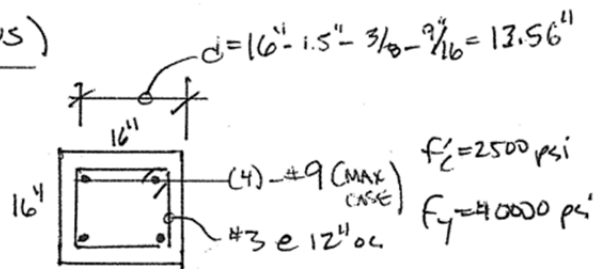 us)
d=16"-1.5"-3/8-9/16=13.56"
16"
16"
(4)-#9 (MAX CASE)
#3 @ 12" oc
f'c=2500 psi
fy=40000 psi